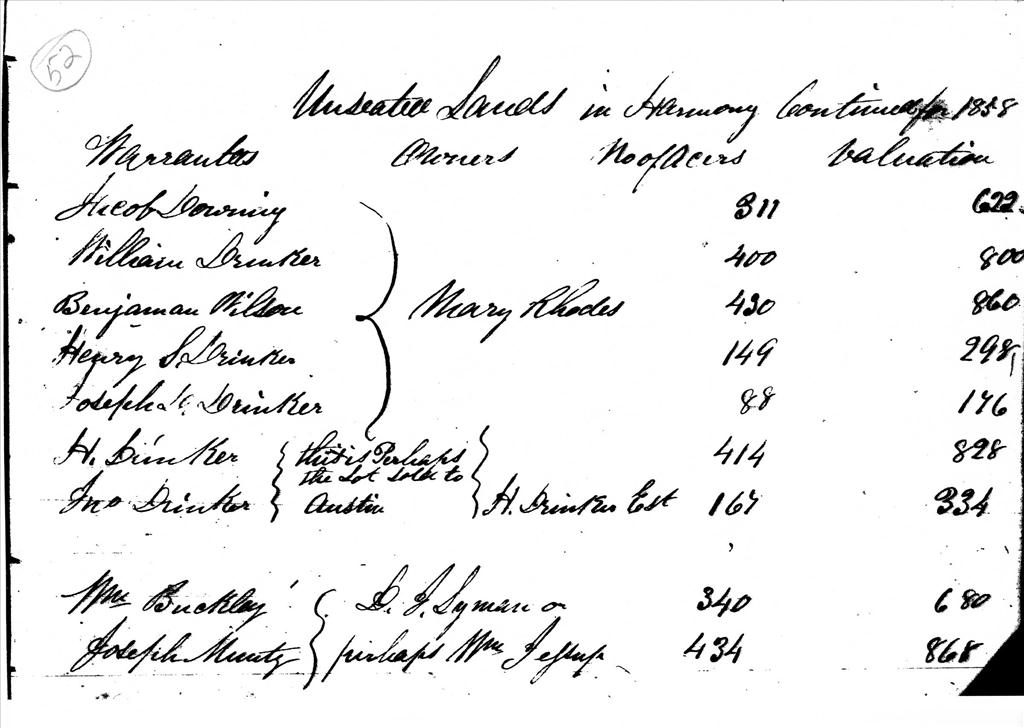 52
Unseated Lands in Harmony Continued for 1858
Warrantees Owners No of Acers Valuation
Jacob Downing 311 622
William Drinker 400 800
Benjaman Wilson Mary Rhodes 430 860
Henry S. Drinker 149 298
Joseph D. Drinker 88 176
H. Drinker this is Perhaps 414 828
the Lot sold to
Jno Drinker Austin H. Drinker Est 167 334
Wm Buckley D. J. Lyman or 340 680
Joseph Muntz perhaps Wm Jessup 434 868